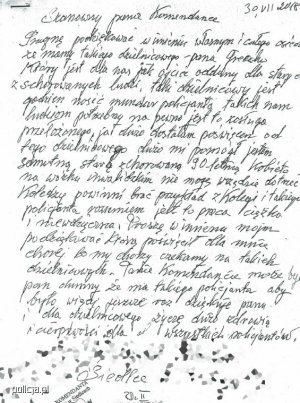 30 VII 2018
Szanowny panie Komendancie
Pragnę podziękować w imieniu własnym i całego
że mamy takiego dzielnicowego pana
który jest dla nas jak ojciec oddany dla starych
schorowanych ludzi, taki dzielnicowy jest
godzien nosić mundur policjanta, takich nam
ludziom potrzeba na pewno jest to zasługa
przełożonego, jak dużo dostałam poświęceń od
tego dzielnicowego dużo mi pomógł jestem
samotna, stara schorowana 90 letnia kobieta
na wózku inwalidzkim nie mogę wszędzie dotrzeć
Koledzy powinni brać przykład z kolegi i takiego
policjanta rozumiem jest to praca ciężka
i niewdzięczna. Proszę w imieniu moim
podziękować którą poświęcił dla mnie
chorej bo my chorzy czekamy na takich
dzielnicowych. Panie Komendancie może być
pan dumny że ma takiego policjanta aby
było więcej jeszcze raz dziękuję panu
i dla dzielnicowego życzę dużo zdrowia
i cierpliwości dla wszystkich policjantów.
Siedlce
KOMENDANTA
policja.pl